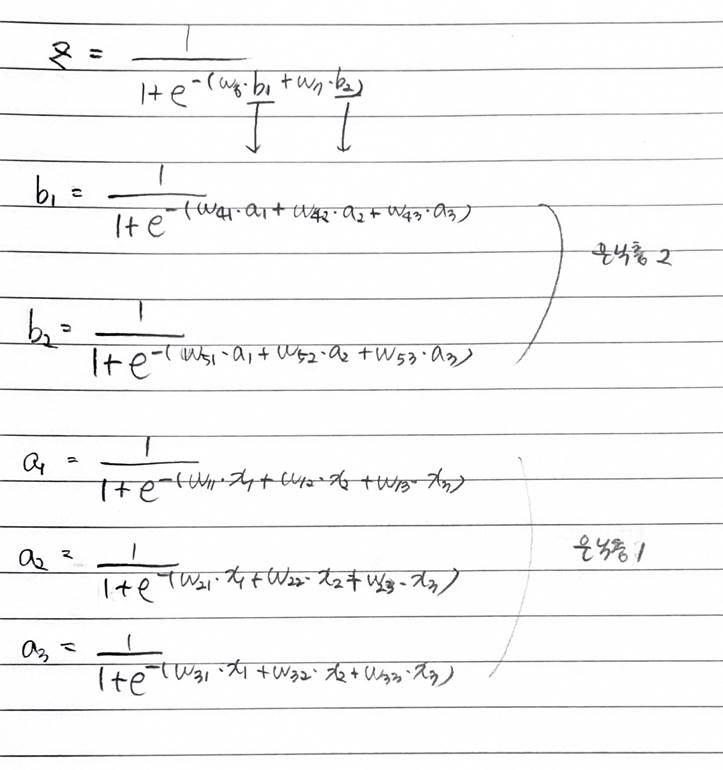 z = 1 / (1+e^-(w6·b1+w7·b2))
↓ ↓
b1 = 1 / (1+e^-(w41·a1+w42·a2+w43·a3))
은닉층 2
b2 = 1 / (1+e^-(w51·a1+w52·a2+w53·a3))
a1 = 1 / (1+e^-(w11·x1+w12·x2+w13·x3))
a2 = 1 / (1+e^-(w21·x1+w22·x2+w23·x3))
은닉층 1
a3 = 1 / (1+e^-(w31·x1+w32·x2+w33·x3))